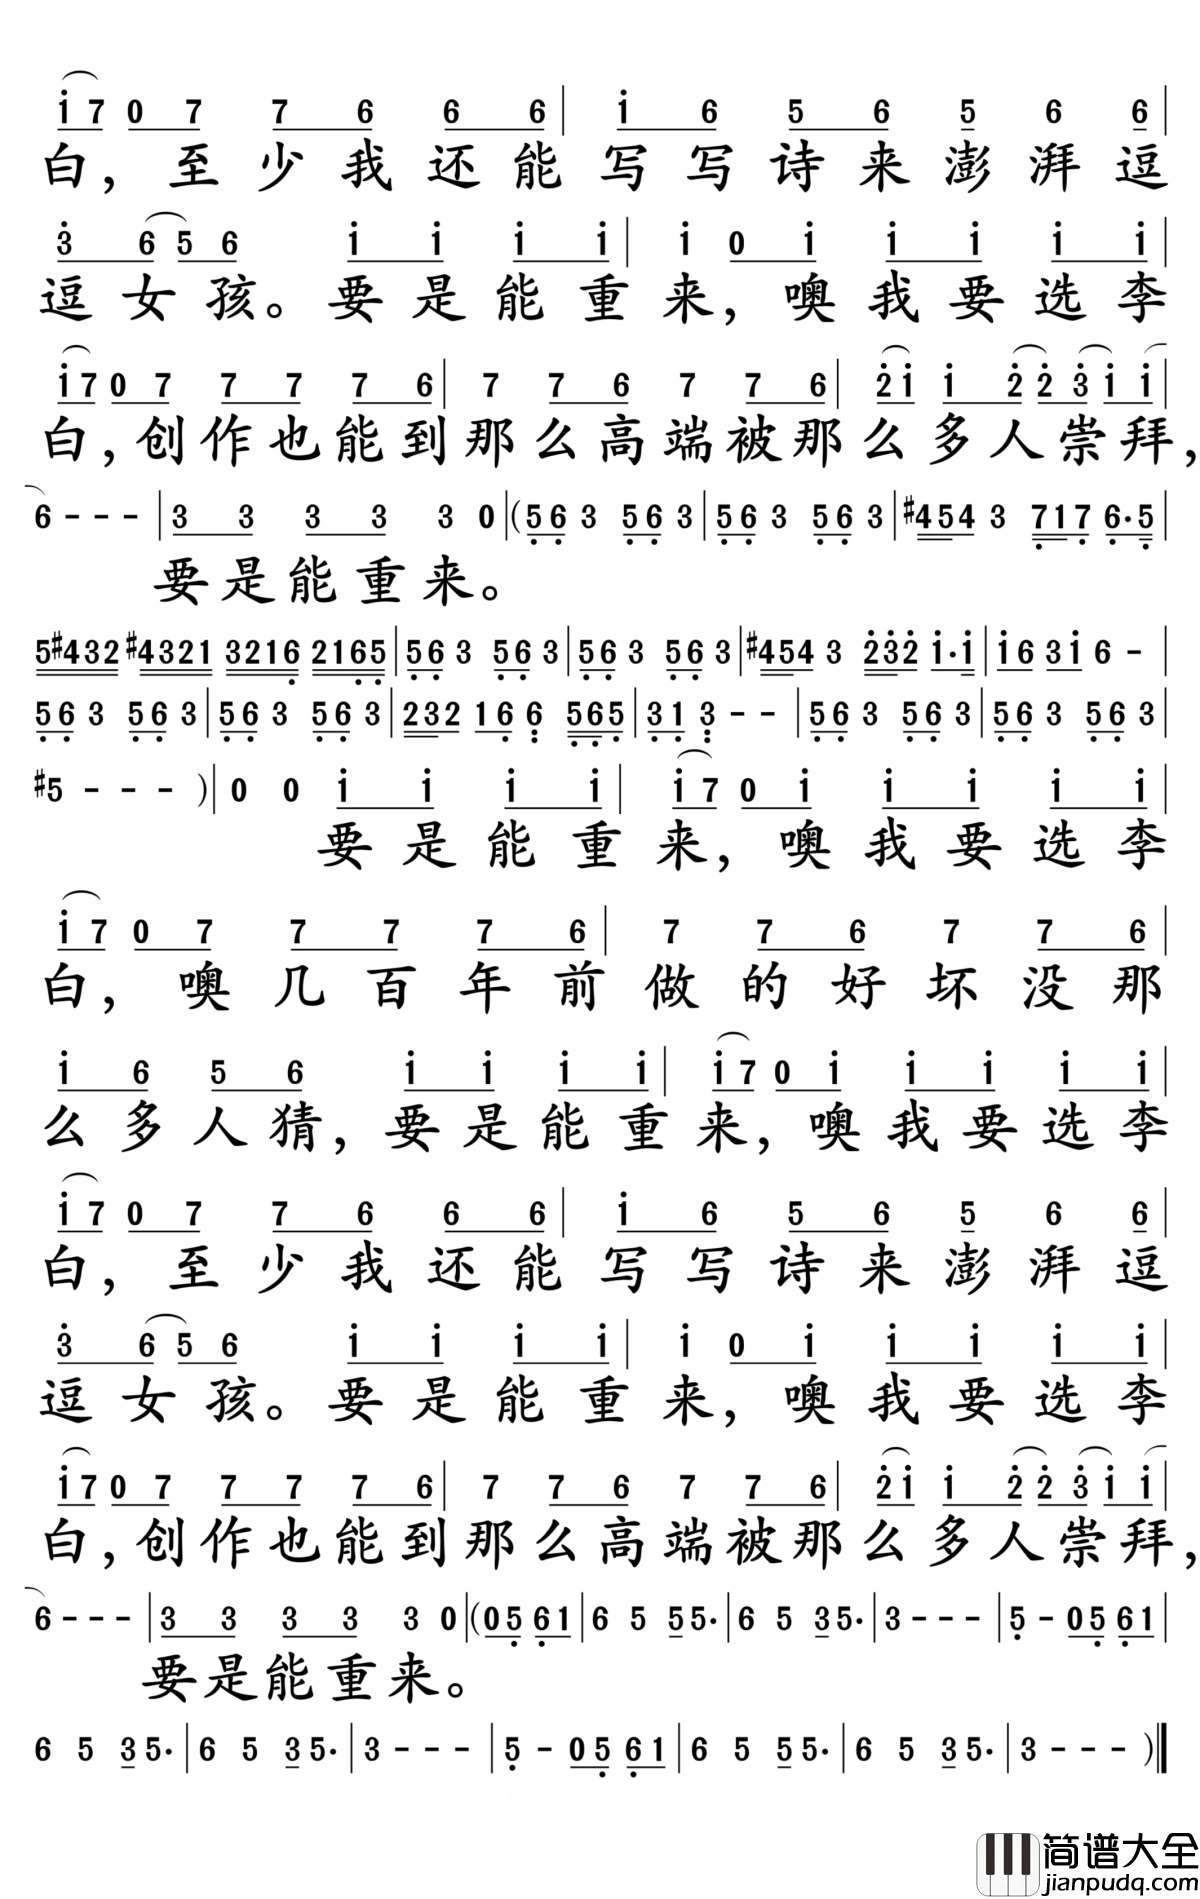 i7 0 7 7 6 6 6 | i 6 5 6 5 6 6 |
白，至少我还能写写诗来澎湃逗
3 6 5 6 i i i i | i 0 i i i i i |
逗女孩。要是能重来，噢我要选李
i7 0 7 7 7 7 6 | 7 7 6 7 7 6 | 2i i 2 2 3 i i |
白，创作也能到那么高端被那么多人崇拜，
6 - - - | 3 3 3 3 3 0 | (56 3 56 3 | 56 3 56 3 | #454 3 717 6·5 |
要是能重来。
5#432 #4321 3216 2165 | 56 3 56 3 | 56 3 56 3 | #454 3 232 i·i | i6 3i 6 - |
56 3 56 3 | 56 3 56 3 | 232 16 6 565 | 31 3 - - | 56 3 56 3 | 56 3 56 3
#5 - - - ) | 0 0 i i i i | i7 0 i i i i i |
要是能重来，噢我要选李
i7 0 7 7 7 7 6 | 7 7 6 7 7 6 |
白，噢几百年前做的好坏没那
i 6 5 6 i i i i | i7 0 i i i i i |
么多人猜，要是能重来，噢我要选李
i7 0 7 7 6 6 6 | i 6 5 6 5 6 6 |
白，至少我还能写写诗来澎湃逗
3 6 5 6 i i i i | i 0 i i i i i |
逗女孩。要是能重来，噢我要选李
i7 0 7 7 7 7 6 | 7 7 6 7 7 6 | 2i i 2 2 3 i i |
白，创作也能到那么高端被那么多人崇拜，
6 - - - | 3 3 3 3 3 0 | (05 61 | 6 5 55· | 6 5 35· | 3 - - - | 5 - 05 61 |
要是能重来。
6 5 35· | 6 5 35· | 3 - - - | 5 - 05 61 | 6 5 55· | 6 5 35· | 3 - - - ) ||
简谱大全
jianpudq.com